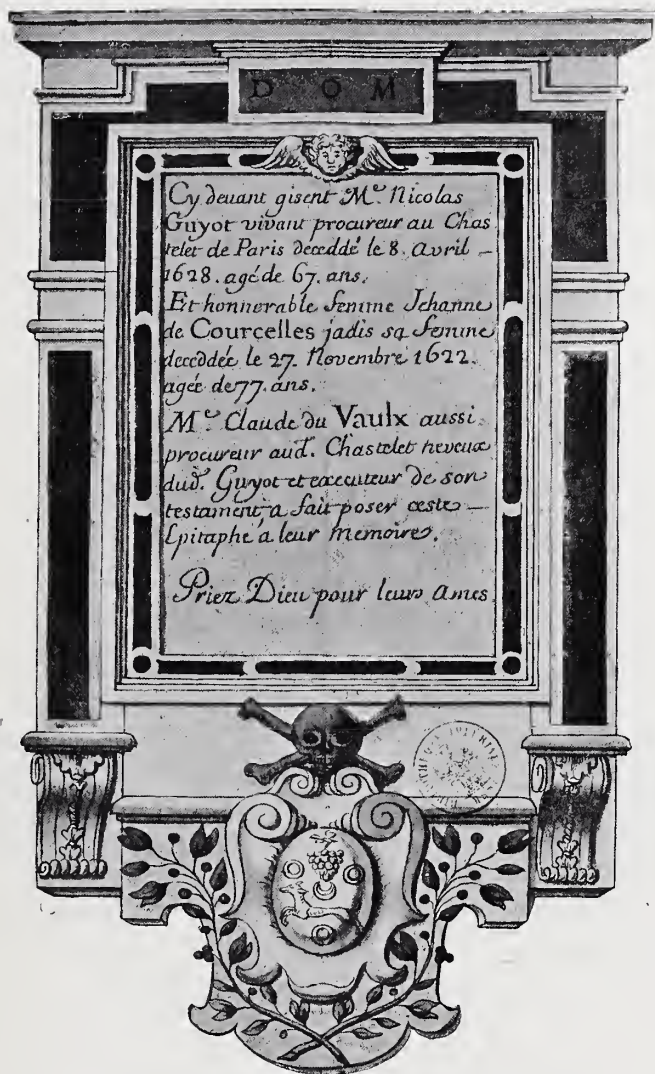 D O M
Cy deuant gisent M.e Nicolas
Guyot vivant procureur au Chas
telet de Paris deceddé le 8. Avril –
1628. agé de 67. ans.
Et honnorable femme Jehanne
de Courcelles jadis sa femme
deceddée le 27. Novembre 1622.
agée de 77. ans.
M.e Claude du Vaulx aussi
procureur aud. Chastelet neveux
dud. Guyot et executeur de son
testament a fait poser ceste –
Epitaphe a leur memoire.
Priez Dieu pour leurs ames.